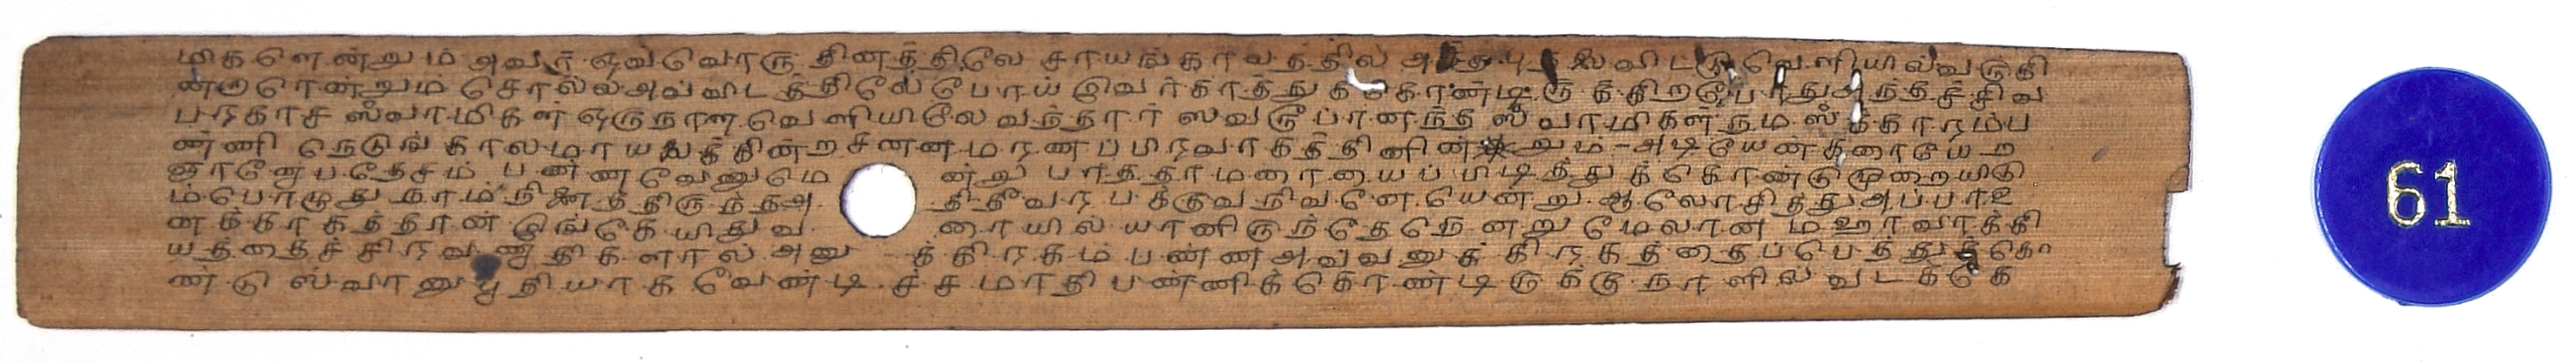 மிகளென்றும் அவர் ஒவ்வொரு தினத்திலே சாயங்காலத்தில் விட்டு வெளியில் வருகி
ன்றாரென்றும் சொல்ல அவ்விடத்திலே போய் இவர் காத்துக்கொண்டிருக்கிறபோது அந்தச்சிவ
பரகாச ஸ்வாமிகள் ஒருநாள் வெளியிலே வந்தார் ஸ்வரூபானந்த ஸ்வாமிகள் நமஸ்க்காரம்ப
ண்ணி நெடுங்காலமாய் சனனமரணப் பிரவாகத்தினின்றும் - அடியேன் கரையேற
ஞானோபதேசம் பண்ணவேணுமெ ன்று பாத்தாமரையைப் பிடித்துக்கொண்டு முறையிடு
ம்பொழுது நாம் நினைத்திருந்த அ திதீவர பக்குவநிவனேயென்று ஆலோசித்து அப்பா உ
னக்காகத்தான் இங்கேயிதுவ ரையில் யானிருந்தேனென்று மேலான மஹாவாக்கி
யத்தைச் சிரவணாதிகளால் அனு க்கிரகம் பண்ண அவ்வனுக்கிரகத்தைப் பெத்துக்கொ
ண்டு ஸ்வானுபூதியாக வேண்டிச்சமாதி பண்ணிக்கொண்டிருக்கு நாளில் வடக்கே
61